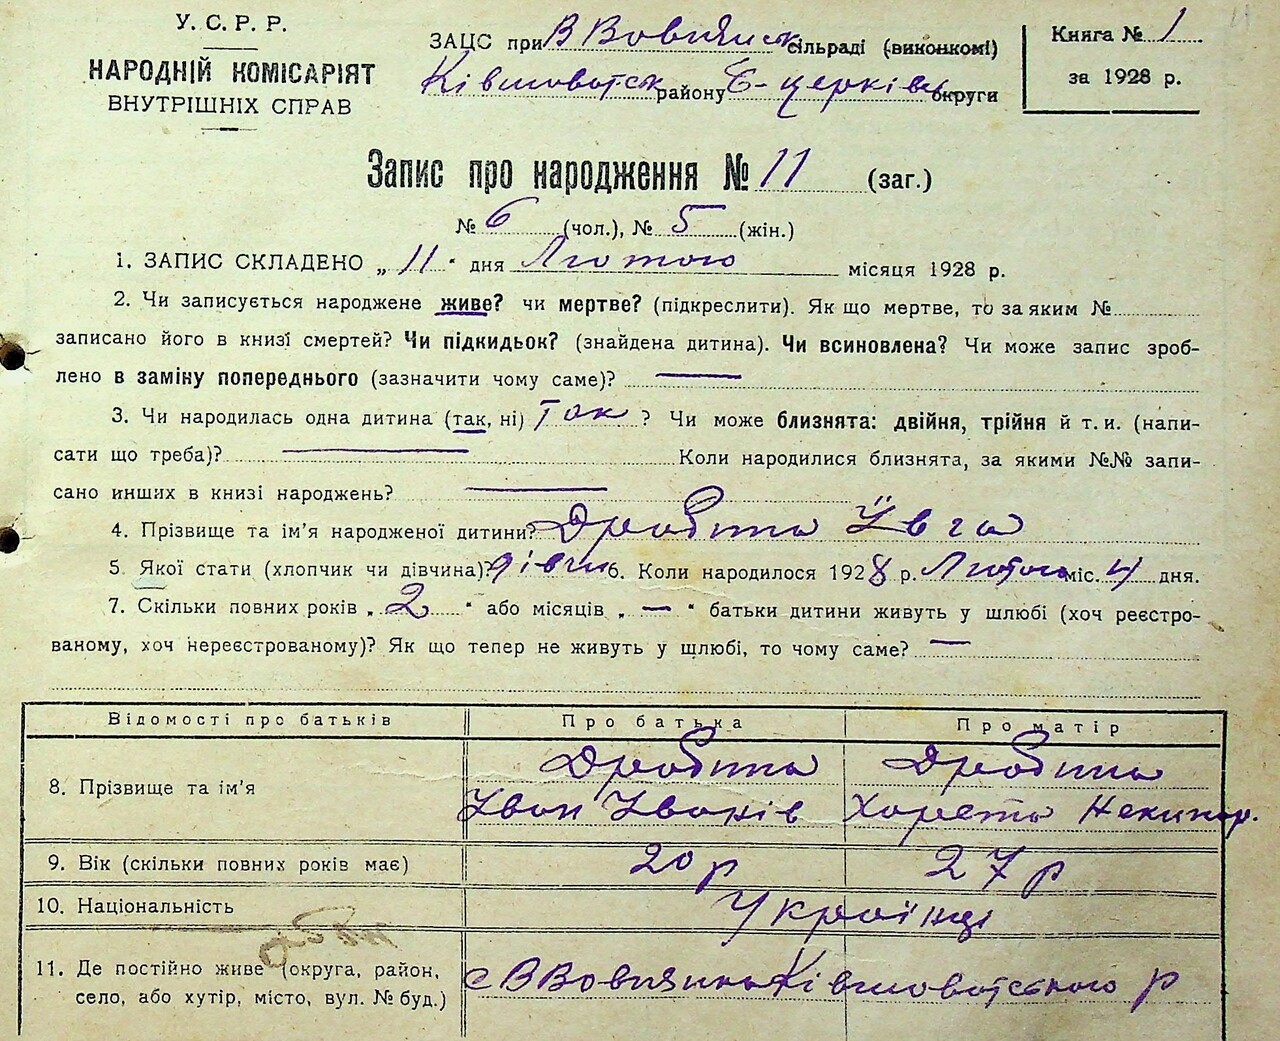 У. С. Р. Р.
НАРОДНІЙ КОМІСАРІЯТ
ВНУТРІШНІХ СПРАВ
ЗАЦС при В Вовнянск сільраді (виконкомі)
Ківшоватск району Б-церківс округи
Книга № 1
за 1928 р.
Запис про народження № 11 (заг.)
№ 6 (чол.), № 5 (жін.)
1. ЗАПИС СКЛАДЕНО „ 11 " дня Лютого місяця 1928 р.
2. Чи записується народжене живе? чи мертве? (підкреслити). Як що мертве, то за яким №
записано його в книзі смертей? Чи підкидьок? (знайдена дитина). Чи всиновлена? Чи може запис зроб-
лено в заміну попереднього (зазначити чому саме)? —
3. Чи народилась одна дитина (так, ні) так ? Чи може близнята: двійня, трійня й т. и. (напи-
сати що треба)? — Коли народилися близнята, за якими №№ запи-
сано инших в книзі народжень? —
4. Прізвище та ім'я народженої дитини? Дробита Ївга
5. Якої стати (хлопчик чи дівчина)? дівчи 6. Коли народилося 1928 р. Лютого міс. 4 дня.
7. Скільки повних років „ 2 " або місяців „ — " батьки дитини живуть у шлюбі (хоч реєстро-
ваному, хоч нереєстрованому)? Як що тепер не живуть у шлюбі, то чому саме? —
Відомості про батьків Про батька Про матір
8. Прізвище та ім'я Дробита Дробита
Іван Іванів Харета
9. Вік (скільки повних років має) 20 р 27 р
10. Національність Українці
11. Де постійно живе (округа, район, с В Вовнянка Ківшоватського р
село, або хутір, місто, вул. № буд.)